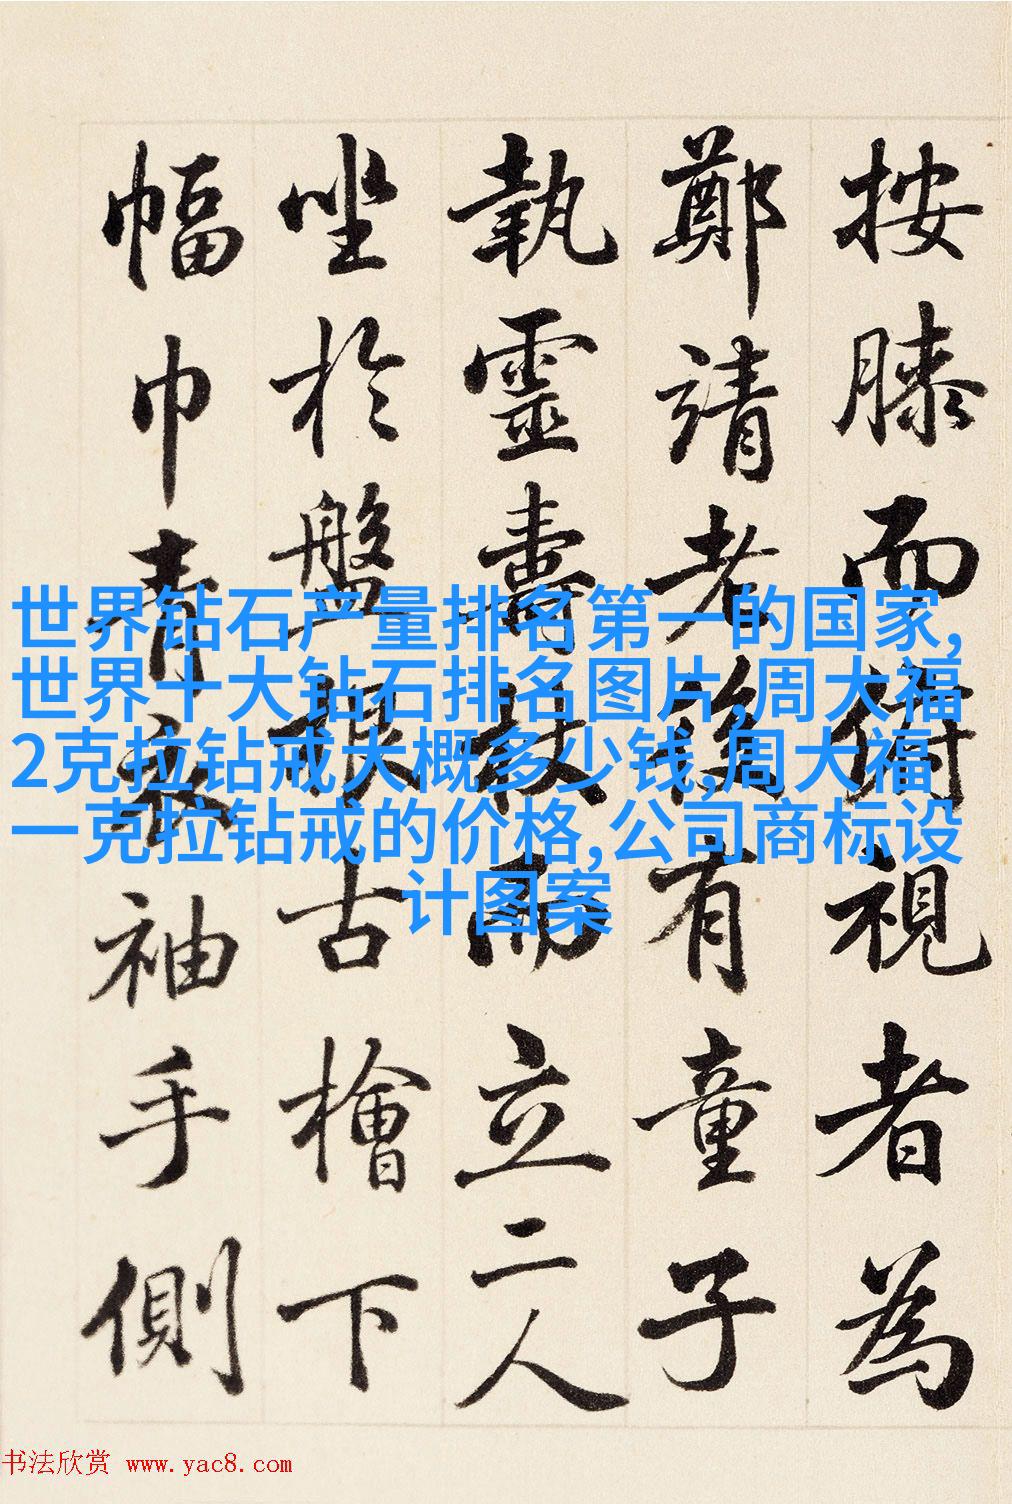 按膝而俯視者為
鄭靖老後有童子
執靈壽杖而立二人
坐於盤根古檜下
幅巾青衣袖手側
世界钻石产量排名第一的国家,
世界十大钻石排名图片,周大福
2克拉钻戒大概多少钱,周大福
一克拉钻戒的价格,公司商标设
计图案
书法欣赏 www.yac8.com